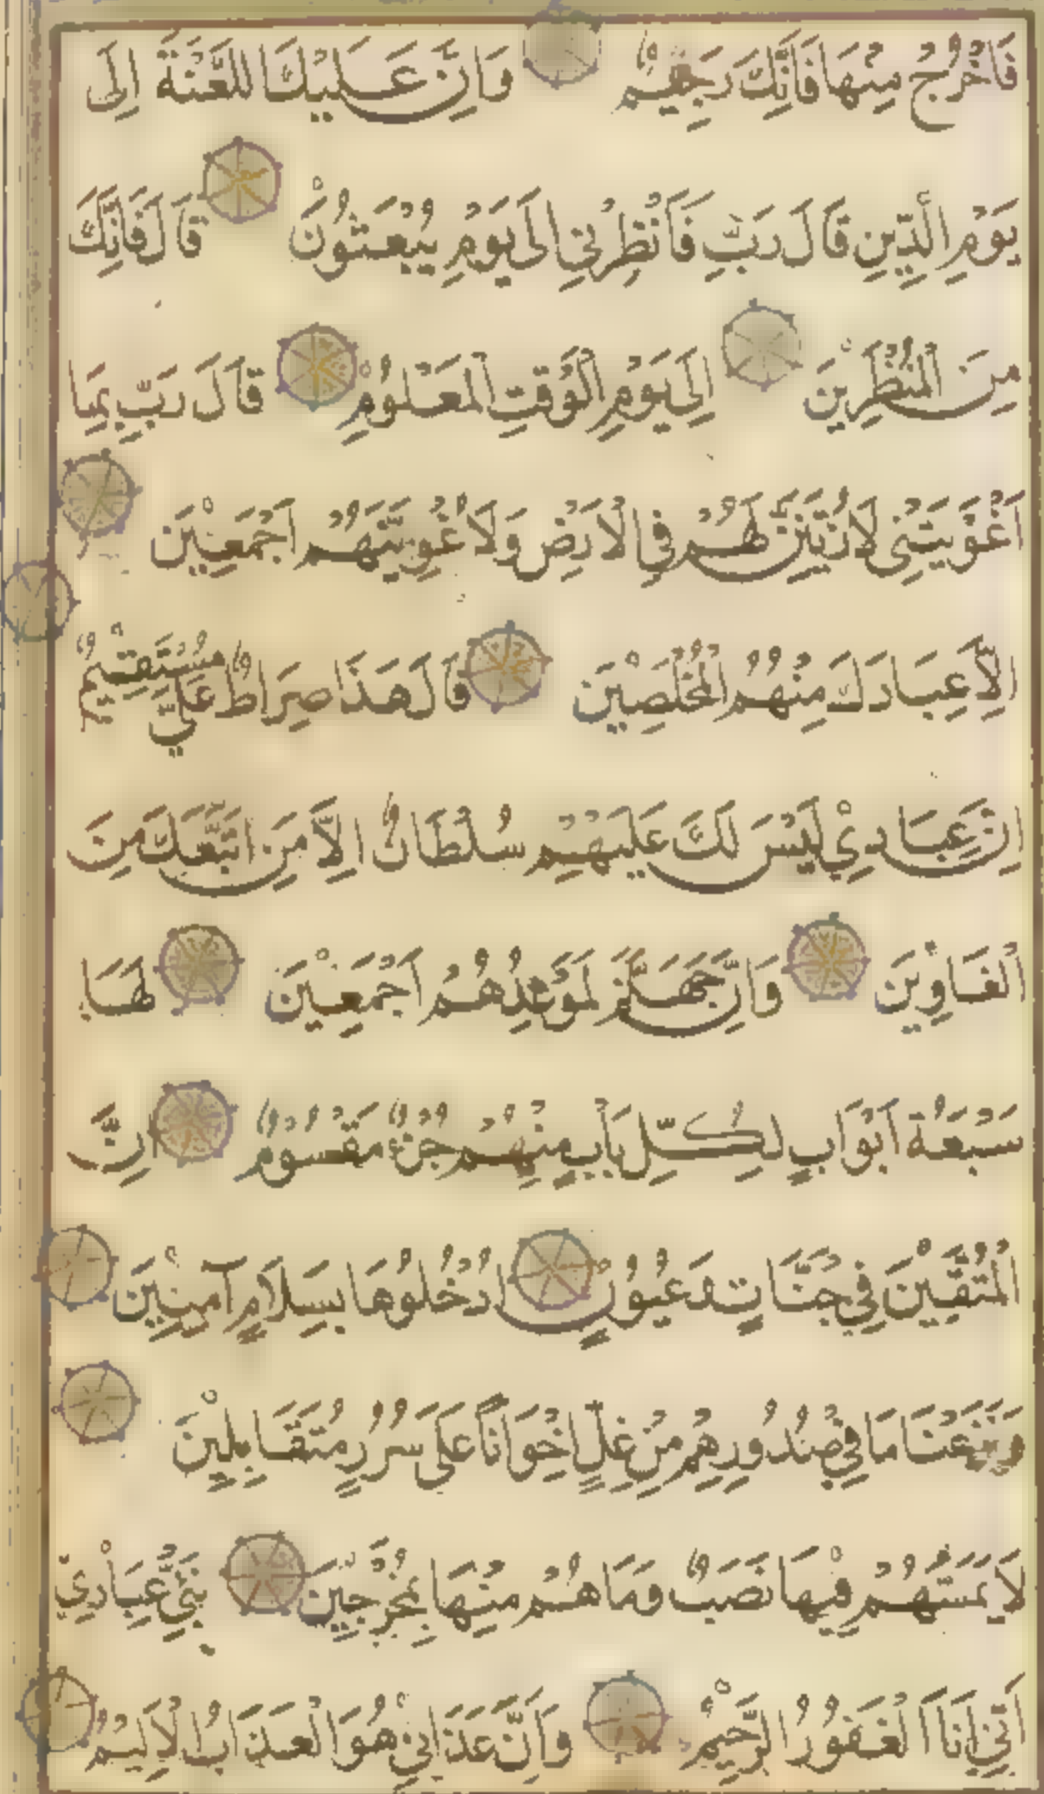 فَاخْرُجْ مِنْهَا فَاِنَّكَ رَجِيْمٌ وَاِنَّ عَلَيْكَ اللَّعْنَةَ اِلَى
يَوْمِ الدِّينِ قَالَ رَبِّ فَاَنْظِرْنِي اِلَى يَوْمِ يُبْعَثُوْنَ قَالَ فَاِنَّكَ
مِنَ الْمُنْظَرِيْنَ اِلَى يَوْمِ الْوَقْتِ الْمَعْلُوْمِ قَالَ رَبِّ بِمَا
اَغْوَيْتَنِى لَاُزَيِّنَنَّ لَهُمْ فِي الْاَرْضِ وَلَاُغْوِيَنَّهُمْ اَجْمَعِيْنَ
اِلَّا عِبَادَكَ مِنْهُمُ الْمُخْلَصِيْنَ قَالَ هَذَا صِرَاطٌ عَلَيَّ مُسْتَقِيْمٌ
اِنَّ عِبَادِيْ لَيْسَ لَكَ عَلَيْهِمْ سُلْطَانٌ اِلَّا مَنِ اتَّبَعَكَ مِنَ
الْغَاوِيْنَ وَاِنَّ جَهَنَّمَ لَمَوْعِدُهُمْ اَجْمَعِيْنَ لَهَا
سَبْعَةُ اَبْوَابٍ لِكُلِّ بَابٍ مِنْهُمْ جُزْءٌ مَقْسُوْمٌ اِنَّ
الْمُتَّقِيْنَ فِي جَنَّاتٍ وَعُيُوْنٍ اُدْخُلُوْهَا بِسَلَامٍ آمِنِيْنَ
وَنَزَعْنَا مَا فِي صُدُوْرِهِمْ مِنْ غِلٍّ اِخْوَانًا عَلَى سُرُرٍ مُتَقَابِلِيْنَ
لَا يَمَسُّهُمْ فِيْهَا نَصَبٌ وَمَا هُمْ مِنْهَا بِمُخْرَجِيْنَ نَبِّئْ عِبَادِيْ
اَنِّي اَنَا الْغَفُوْرُ الرَّحِيْمُ وَاَنَّ عَذَابِيْ هُوَ الْعَذَابُ الْاَلِيْمُ